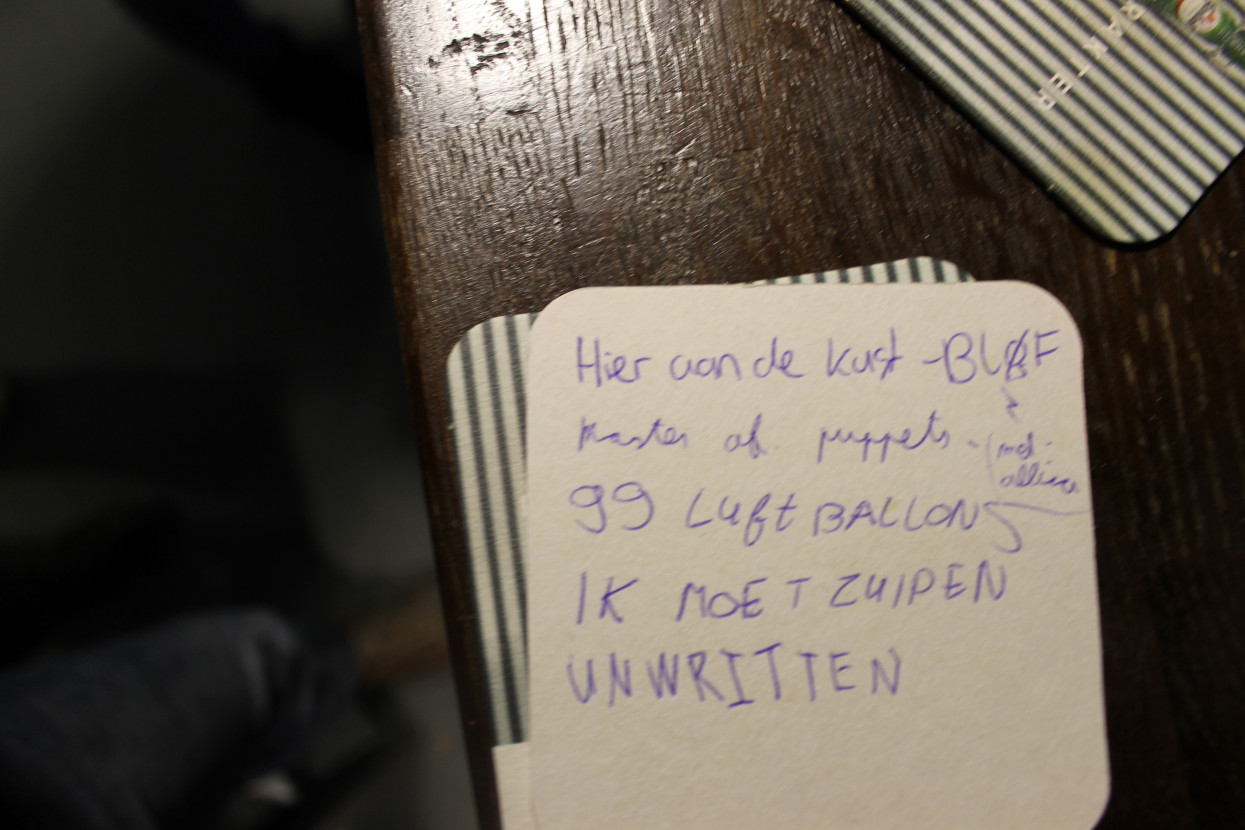 Hier aan de kust - BLØF
Master of puppets - (met-
allica
99 LuftBALLONS
IK MOET ZUIPEN
UNWRITTEN
RAKTER